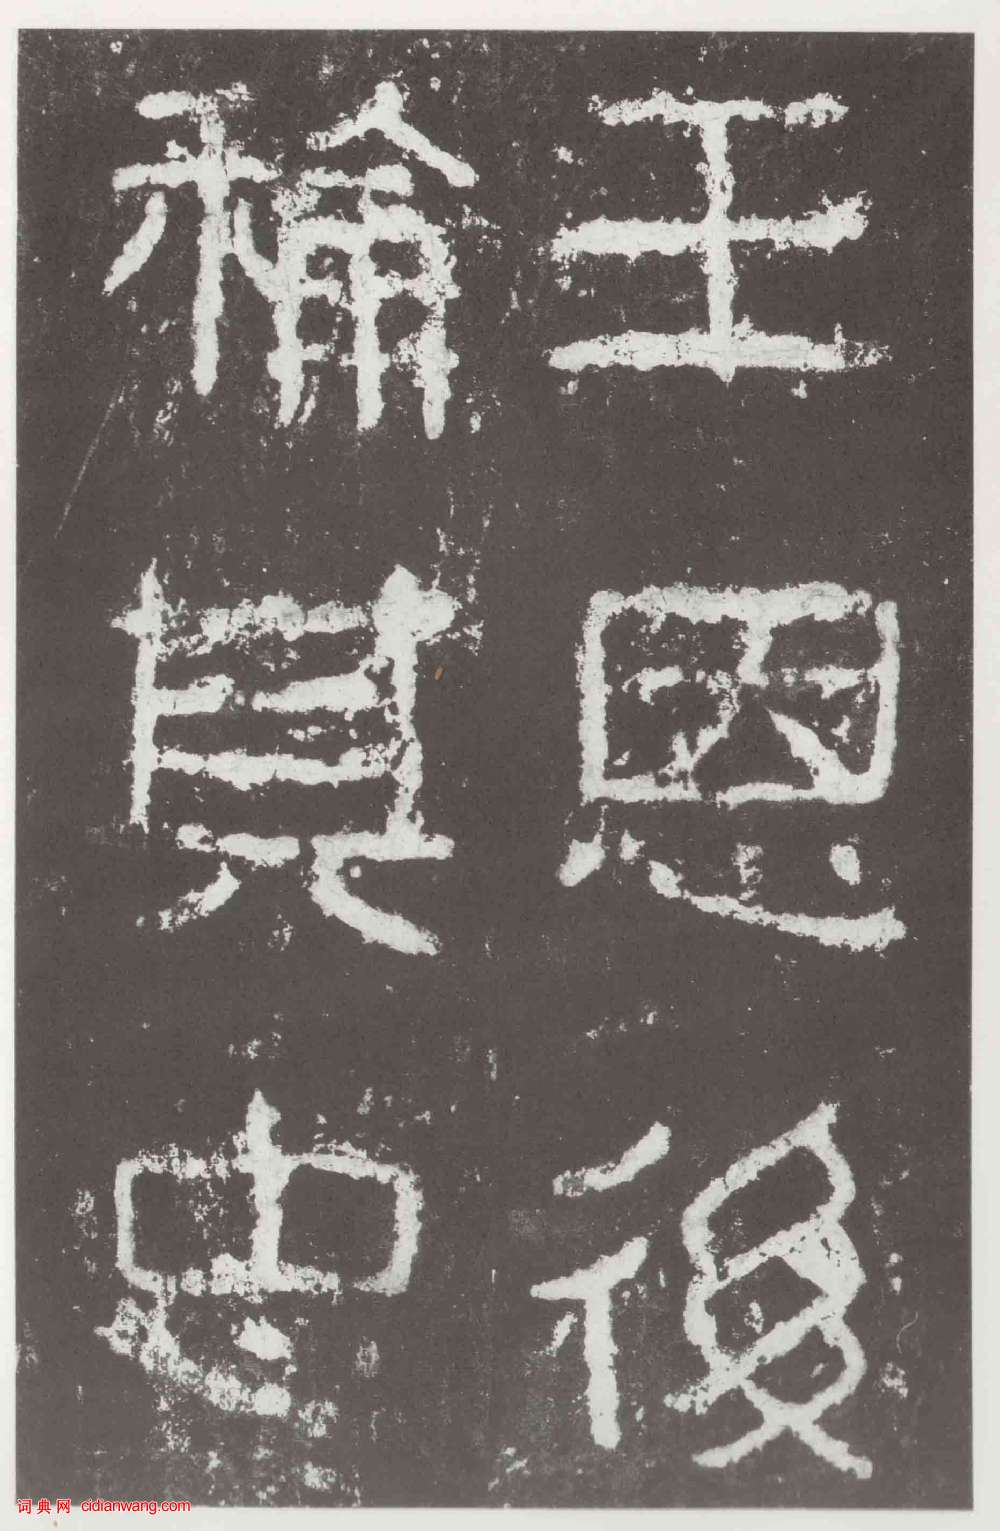 王恩後
稱其忠
词典网 cidianwang.com